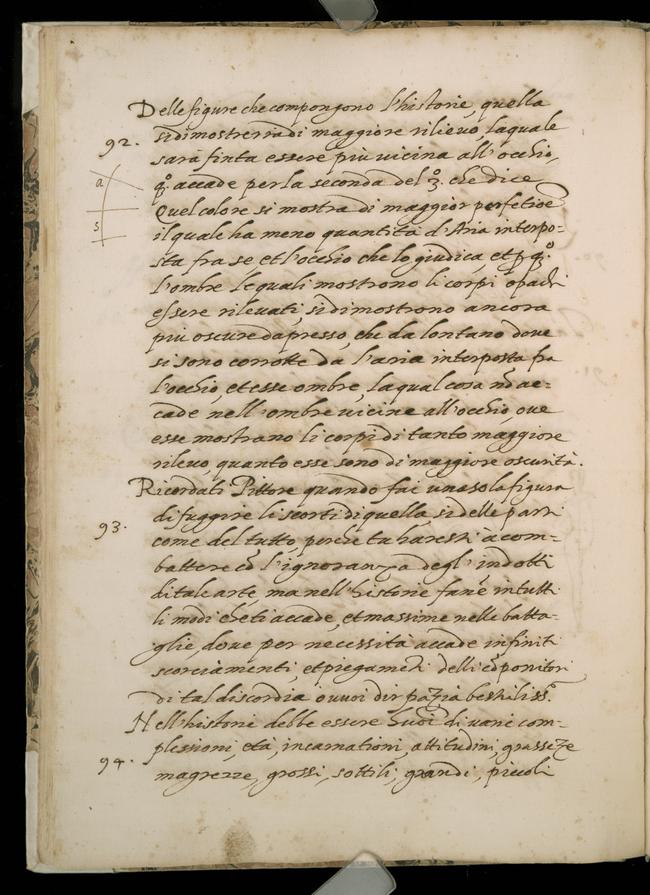 Delle figure che compongono l'historie, quella
92. si dimostrerrà di maggiore rilievo, la quale
sarà finta essere più vicina all'occhio,
a
qo. accade per la seconda del 3o. che dice
Quel colore si mostra di maggior perfetioe
s
il quale ha meno quantità d'Aria interpo=
sta fra se, et l'occhio che lo giudica, et p qo.
l'ombre le quali mostrono li corpi opachi
essere rilevati, si dimostrono ancora
più oscure da presso, che da lontano dove
si sono corrotte da l'aria interposta fra
l'occhio, et esse ombre, la qual cosa nō ac=
cade nell'ombre vicine all'occhio, ove
esse mostrano li corpi di tanto maggiore
rilevo, quanto esse sono di maggiore oscurità.
Ricordati Pittore quando fai una sola figura
93. di fuggire li scorti di quella, si delle parti
come del tutto, perche tu haresti à com=
battere cō l'ignoranza degl'indotti
di tale arte, ma nell'historie fane in tutti
li modi che ti accade, et massime nelle batta=
glie, dove per necessità accade infiniti
scorciamenti, et piegamēti delli cōponitori
di tal discordia o vuoi dir pazzia bestialiss.o
Nell'historie debbe essere huoī di varie com=
plessioni, età, incarnationi, attitudini, grassezze
94. magrezze, grossi, sottili, grandi, piccoli